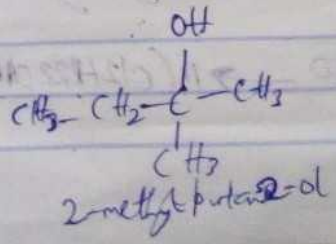 OH
CH3-CH2-C-CH3
CH3
2-methylbutan-2-ol